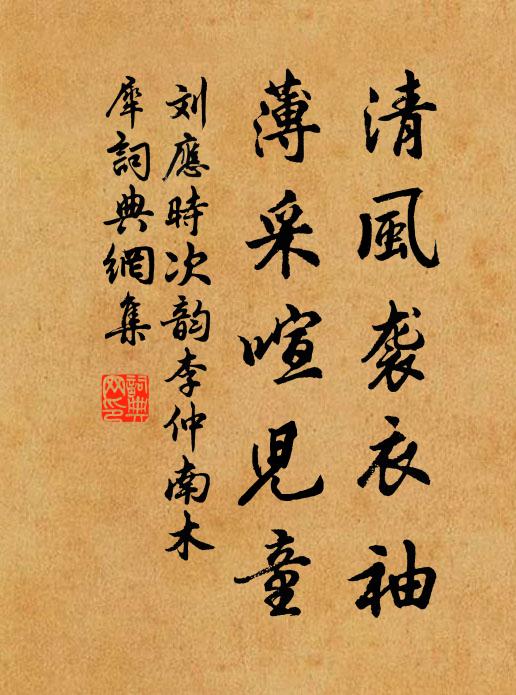 清風袭衣袖
薄采喧兒童
刘應時次韵李仲南木
犀詞典網集
詞典網印